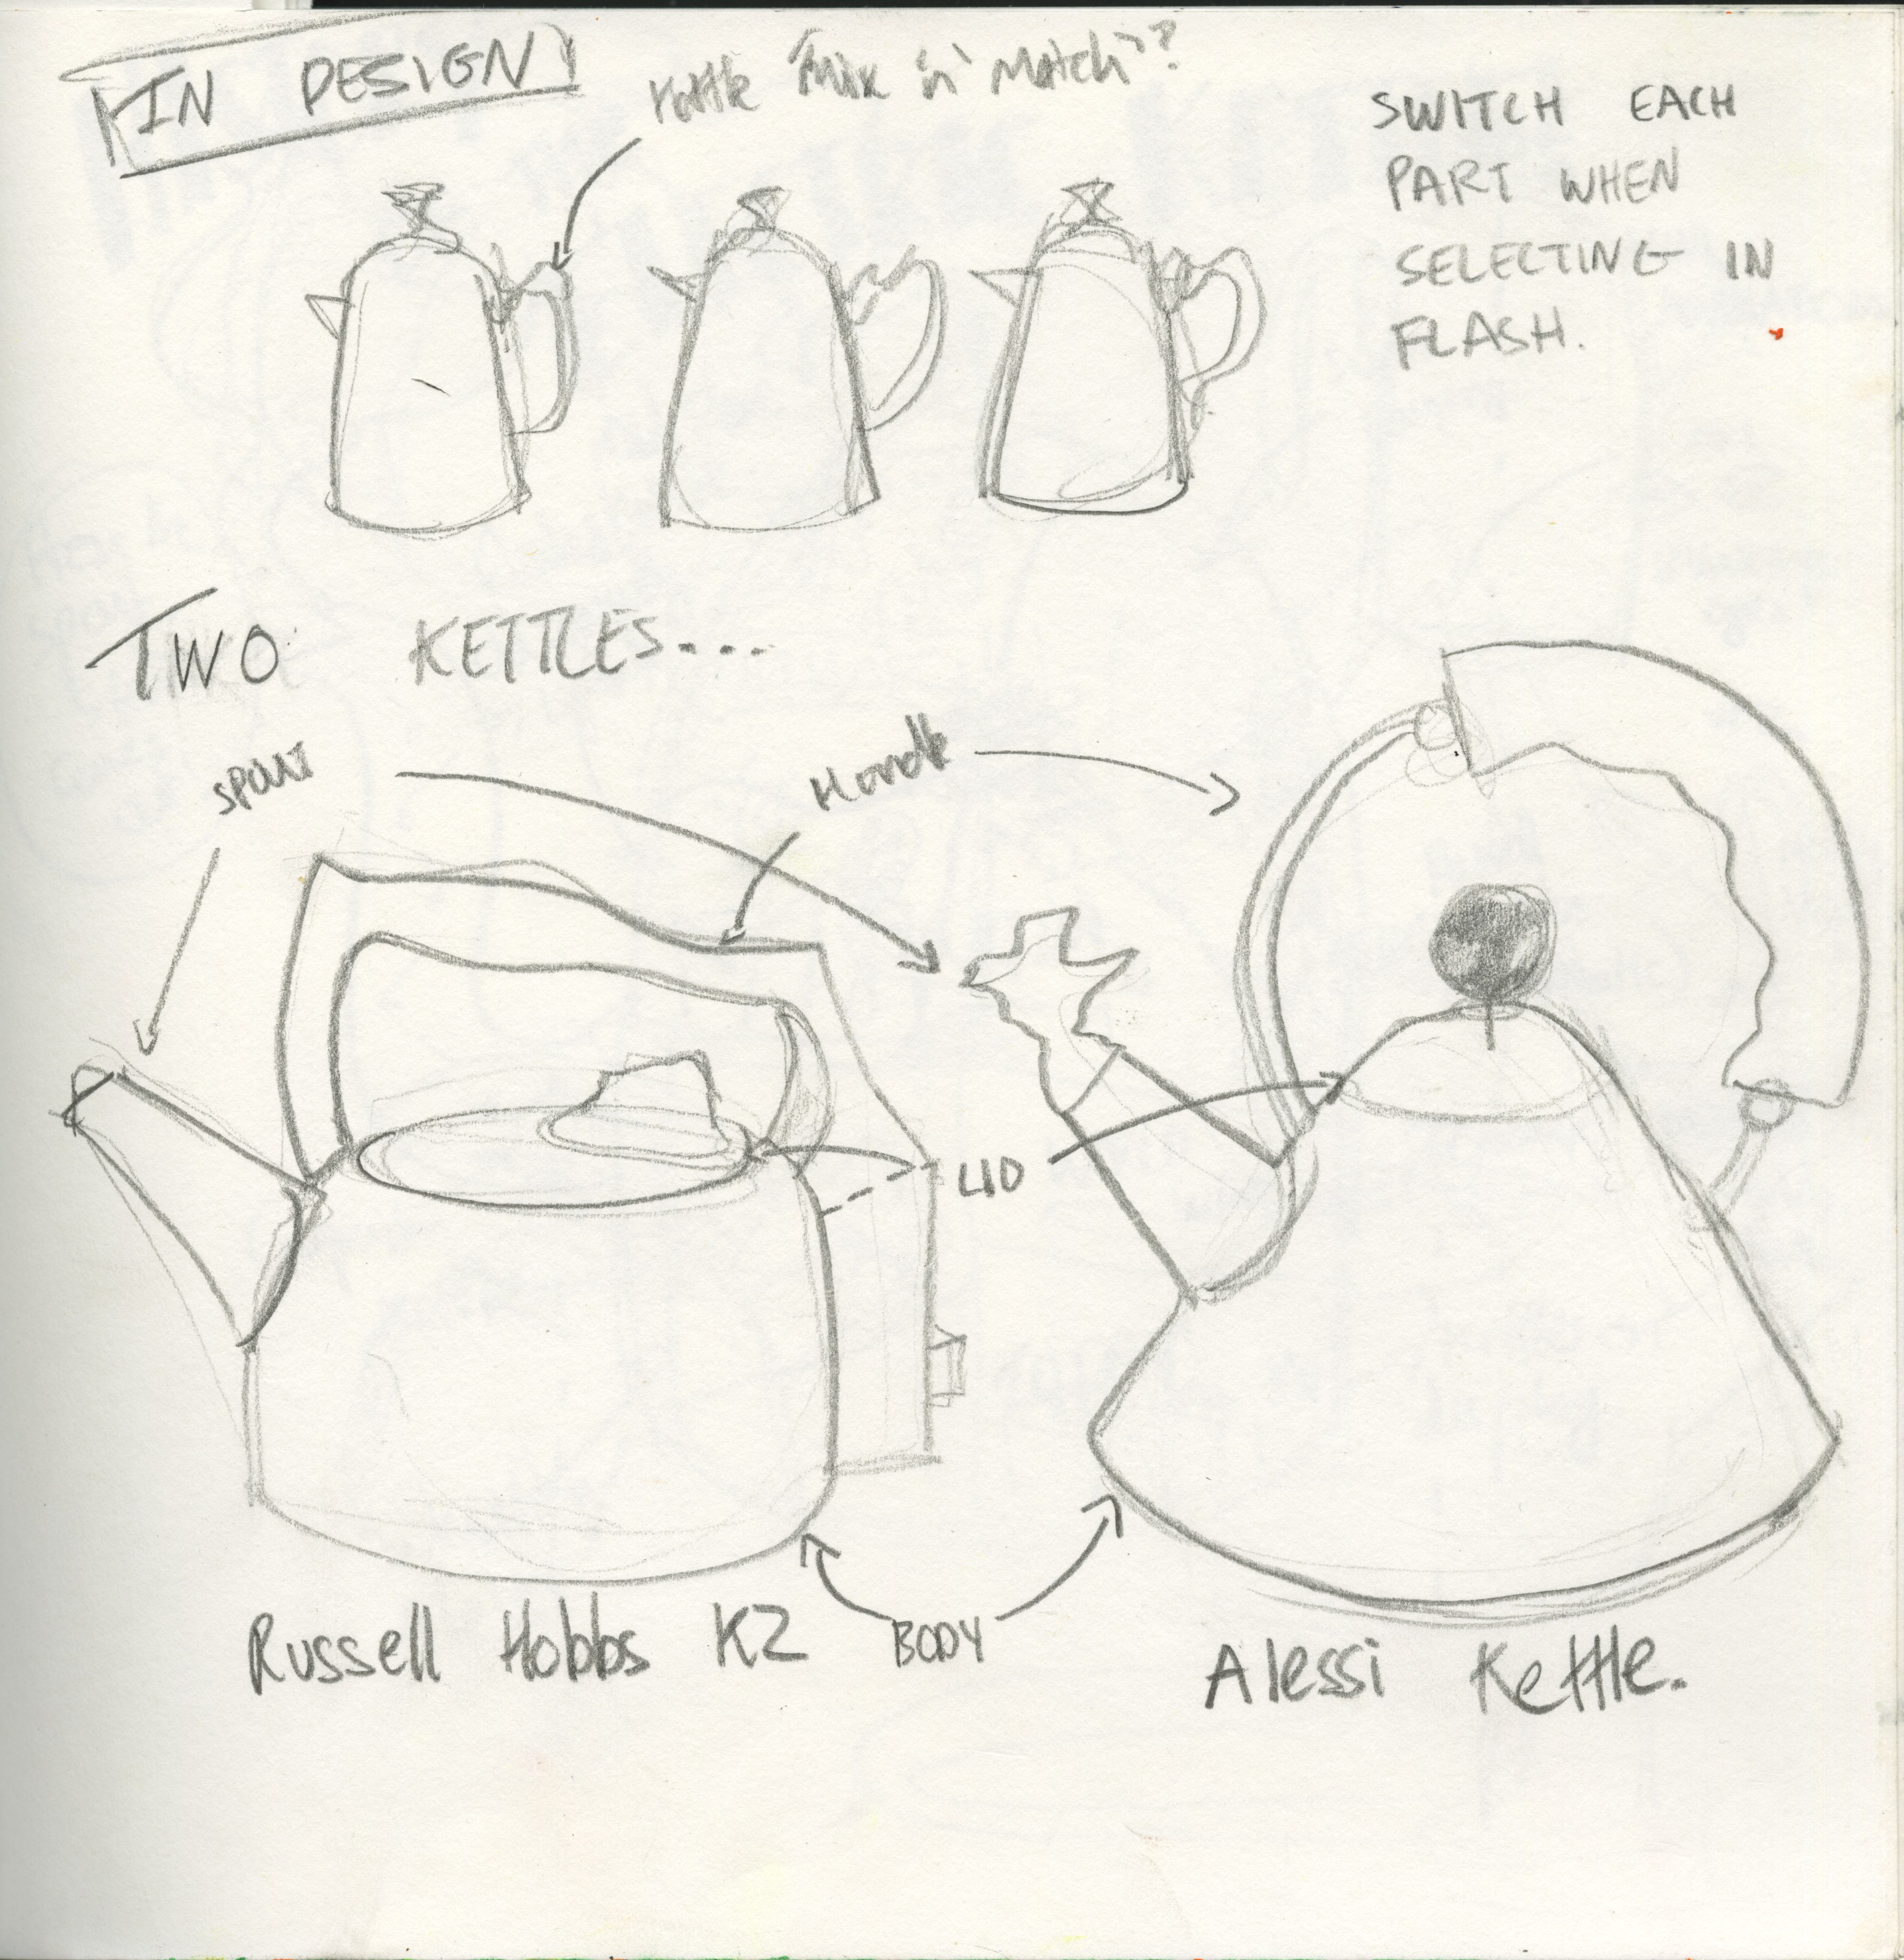 IN DESIGN
kettle "Mix 'n' Match"?
SWITCH EACH
PART WHEN
SELECTING IN
FLASH.
TWO KETTLES....
SPOUT
Handle
LID
BODY
Russell Hobbs K2
Alessi Kettle.